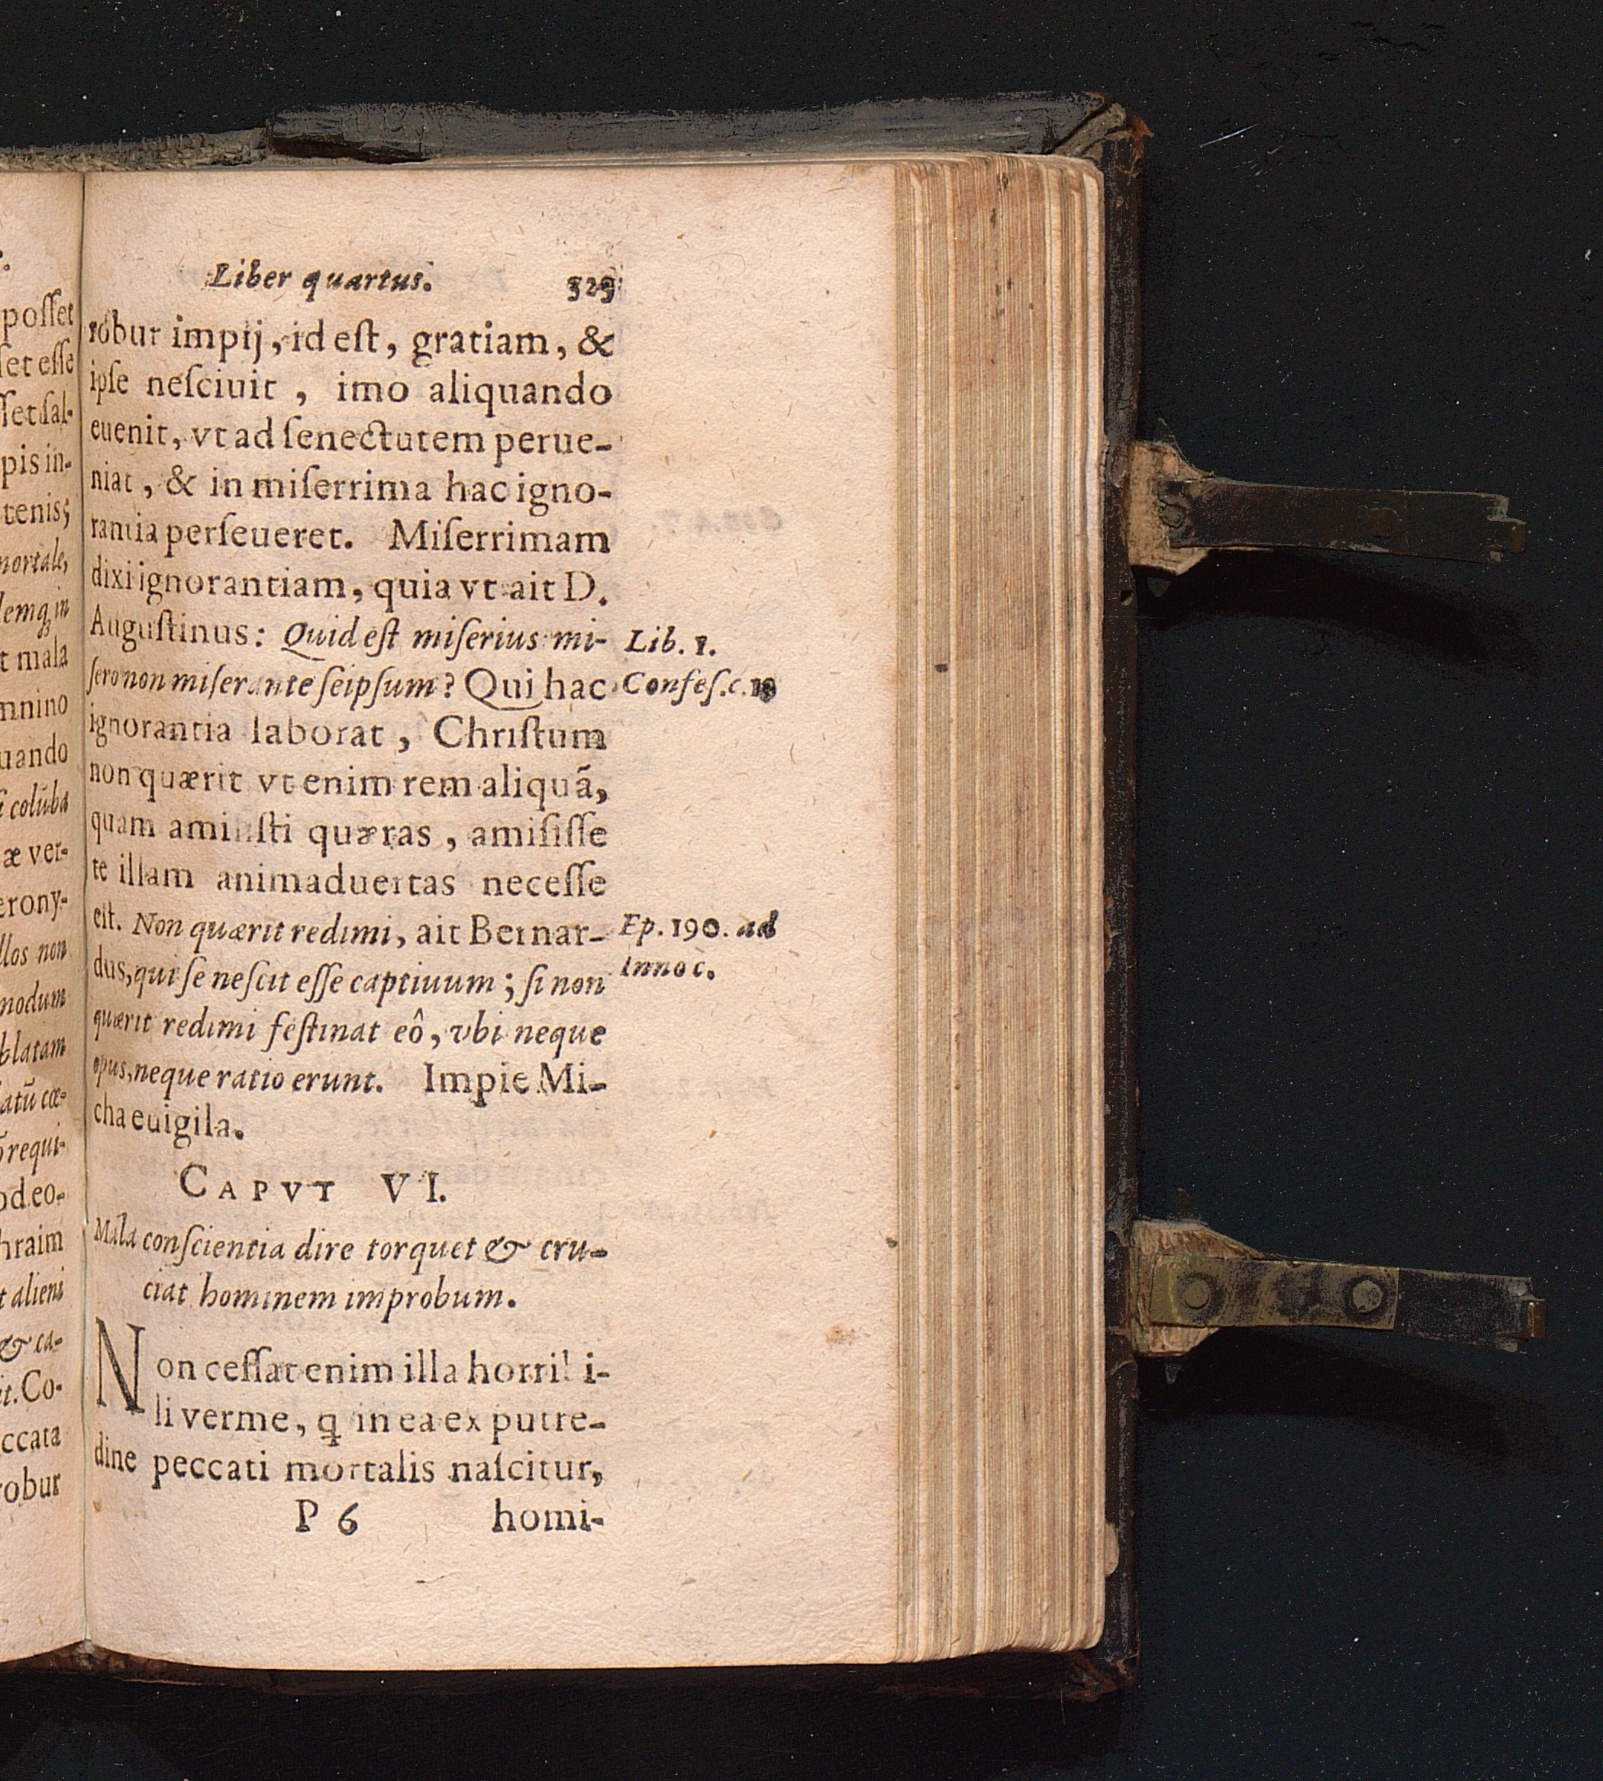 posset
set esse
sset sal-
pis in-
tenis;
mortale,
demq; in
t mala
mnino
uando
coluba
æ ver-
erony-
llos non
modum
blatam
atũ cæ-
requi-
od eo-
hraim
t alieni
& ca-
it. Co-
ccata
robur
Liber quartus. 329
robur impij, id est, gratiam, &
ipse nesciuit, imo aliquando
euenit, vt ad senectutem perue-
niat, & in miserrima hac igno-
rantia perseueret. Miserrimam
dixi ignorantiam, quia vt ait D.
Augustinus: Quid est miserius mi-
sero non miserante seipsum? Qui hac
ignorantia laborat, Christum
non quærit vt enim rem aliquã,
quam amisisti quæras, amisisse
te illam animaduertas necesse
est. Non quærit redimi, ait Bernar-
dus, qui se nescit esse captiuum; si non
quærit redimi festinat eô, vbi neque
opus, neque ratio erunt. Impie Mi-
cha euigila.
Lib. 1.
Confes. c.
Ep. 190. ad
Innoc.
CAPVT VI.
Mala conscientia dire torquet & cru-
ciat hominem improbum.
Non cessat enim illa horribi-
li verme, q in ea ex putre-
dine peccati mortalis nascitur,
P 6 homi-